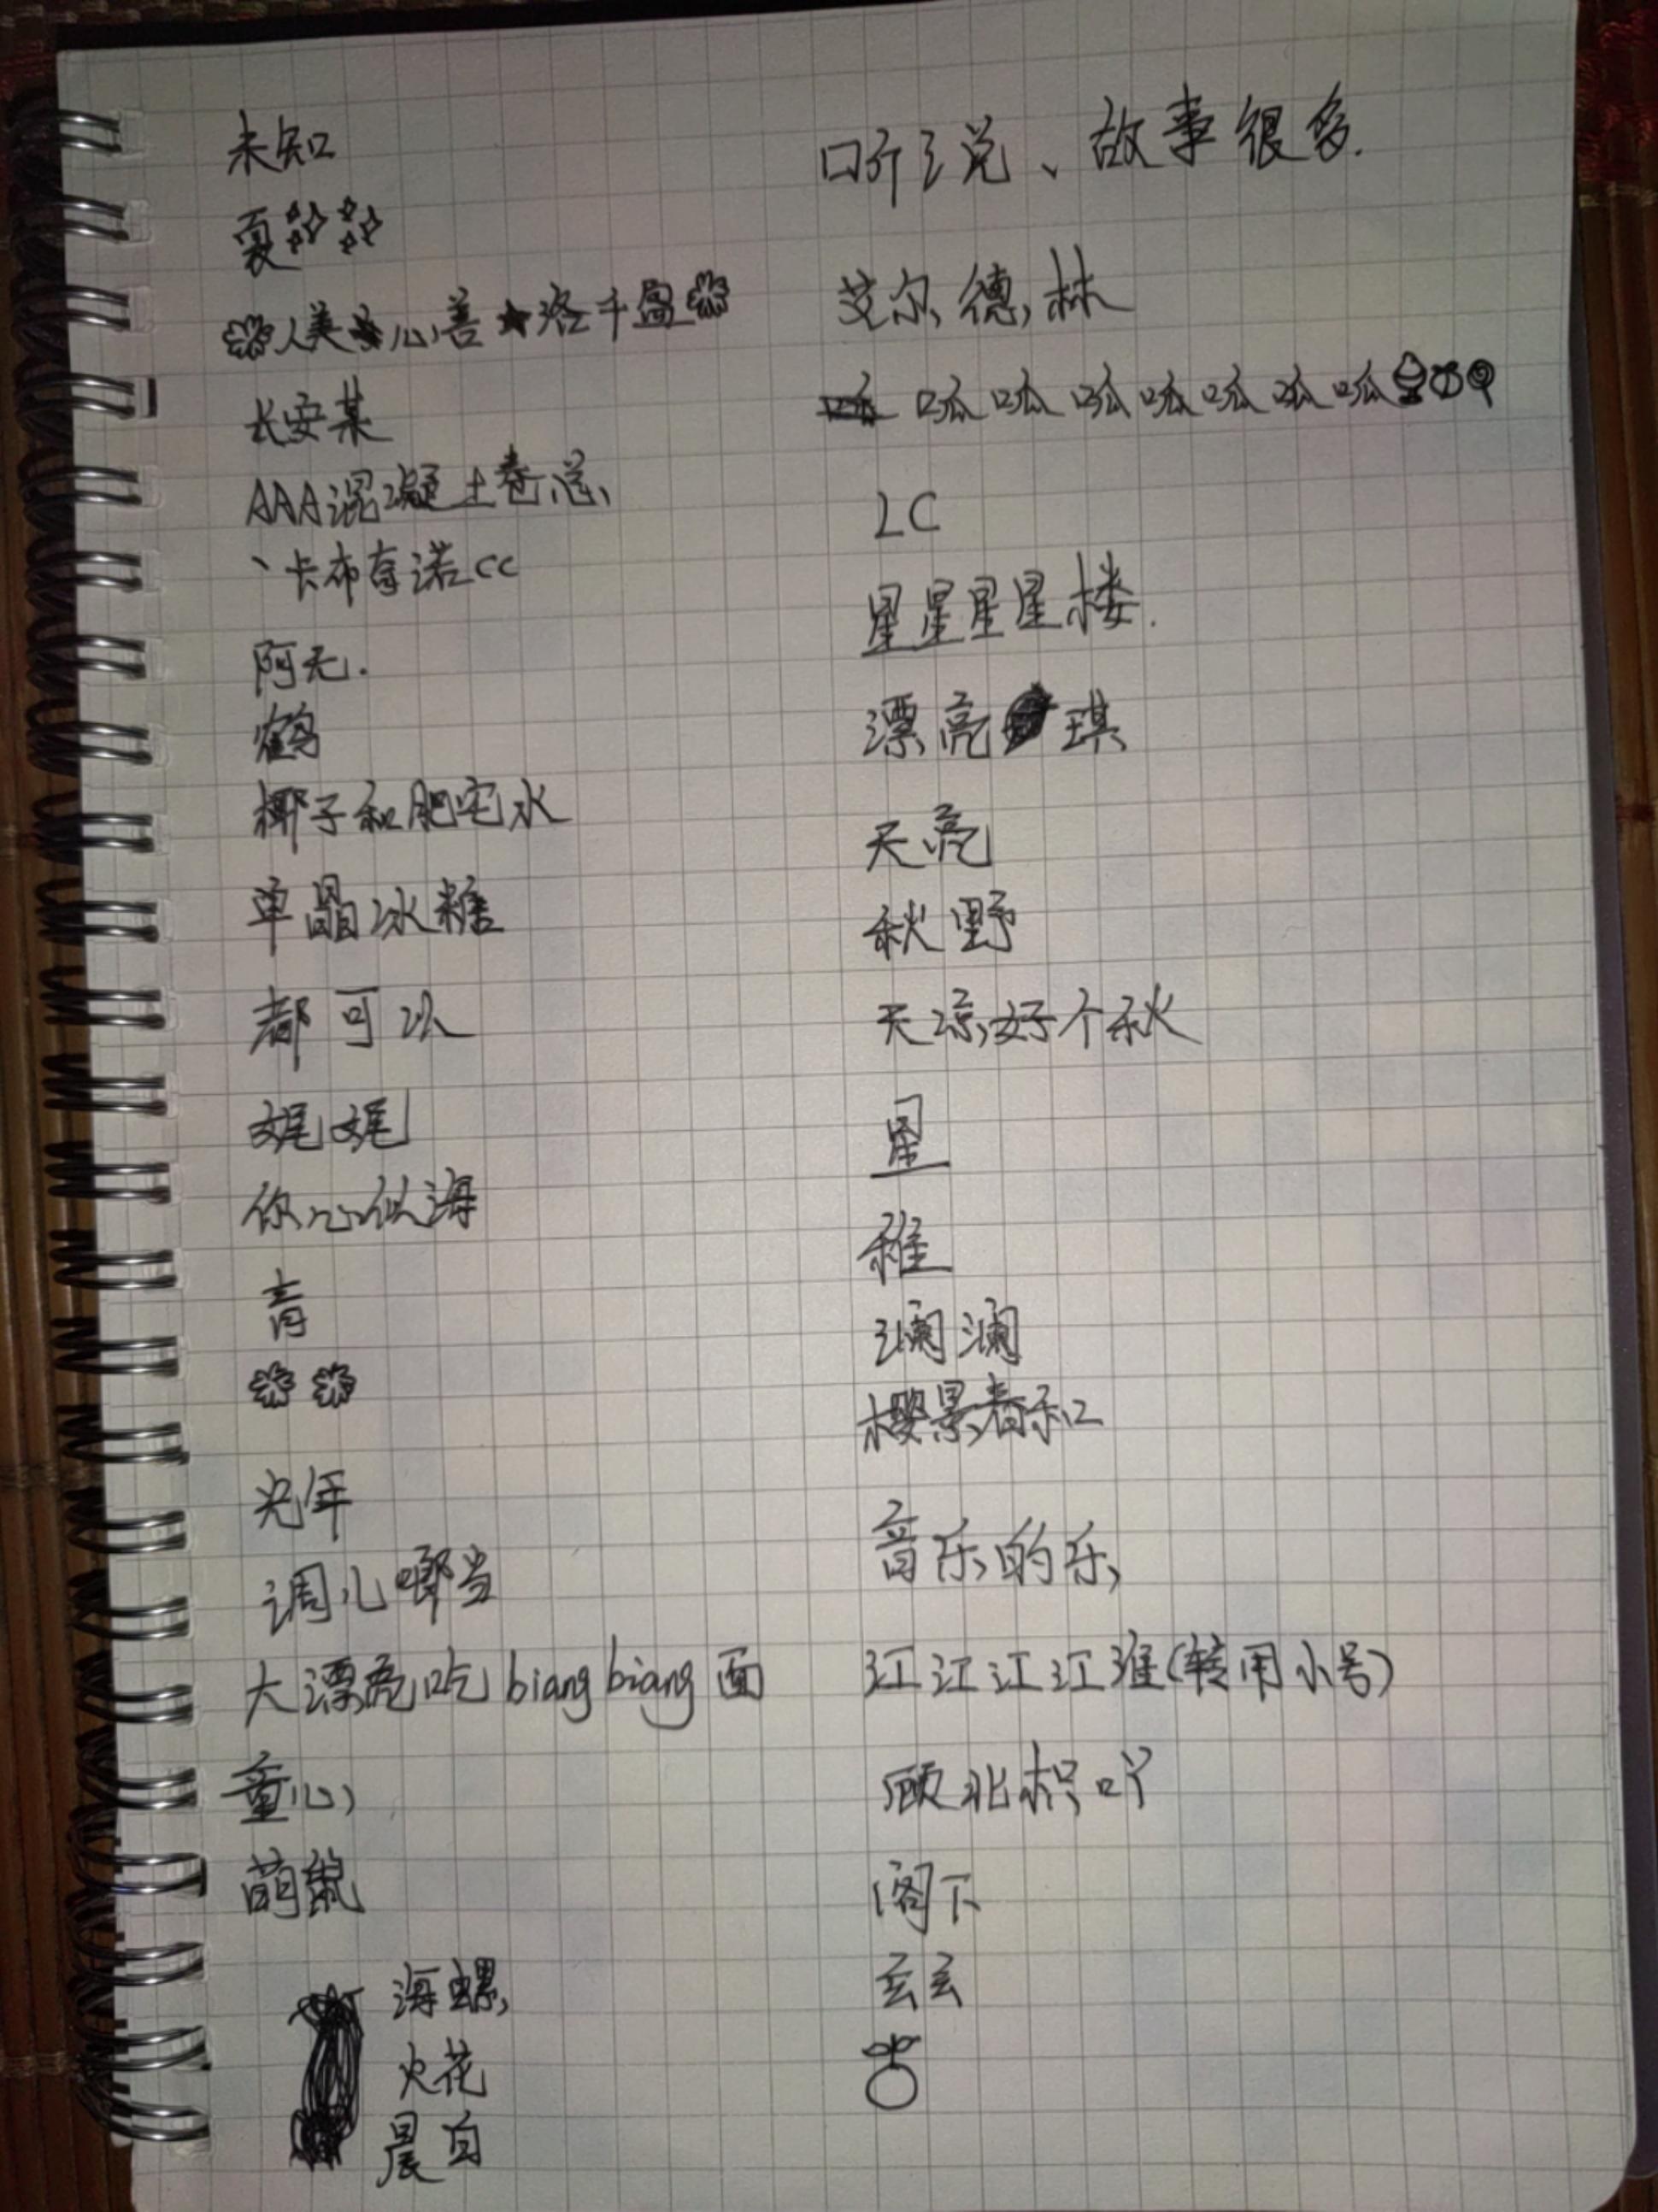 未知
夏
人美★心善★洛千盈
长安某
AAA混凝土卷总
丶卡布奇诺cc
阿无.
鹤
椰子和肥宅水
单晶冰糖
都可以
娓娓
你心似海
青
光年
调儿啷当
大漂亮吃biangbiang面
童心
萌鼠
海螺
火花
晨白
听说、故事很多.
艾尔德林
呱呱呱呱呱呱呱
LC
星星星星楼.
漂亮琪
天亮
秋野
天凉好个秋
星
稚
澜澜
樱景春和
音乐的乐
江江江江淮(转用小号)
顾北枳吖
阁下
玄玄